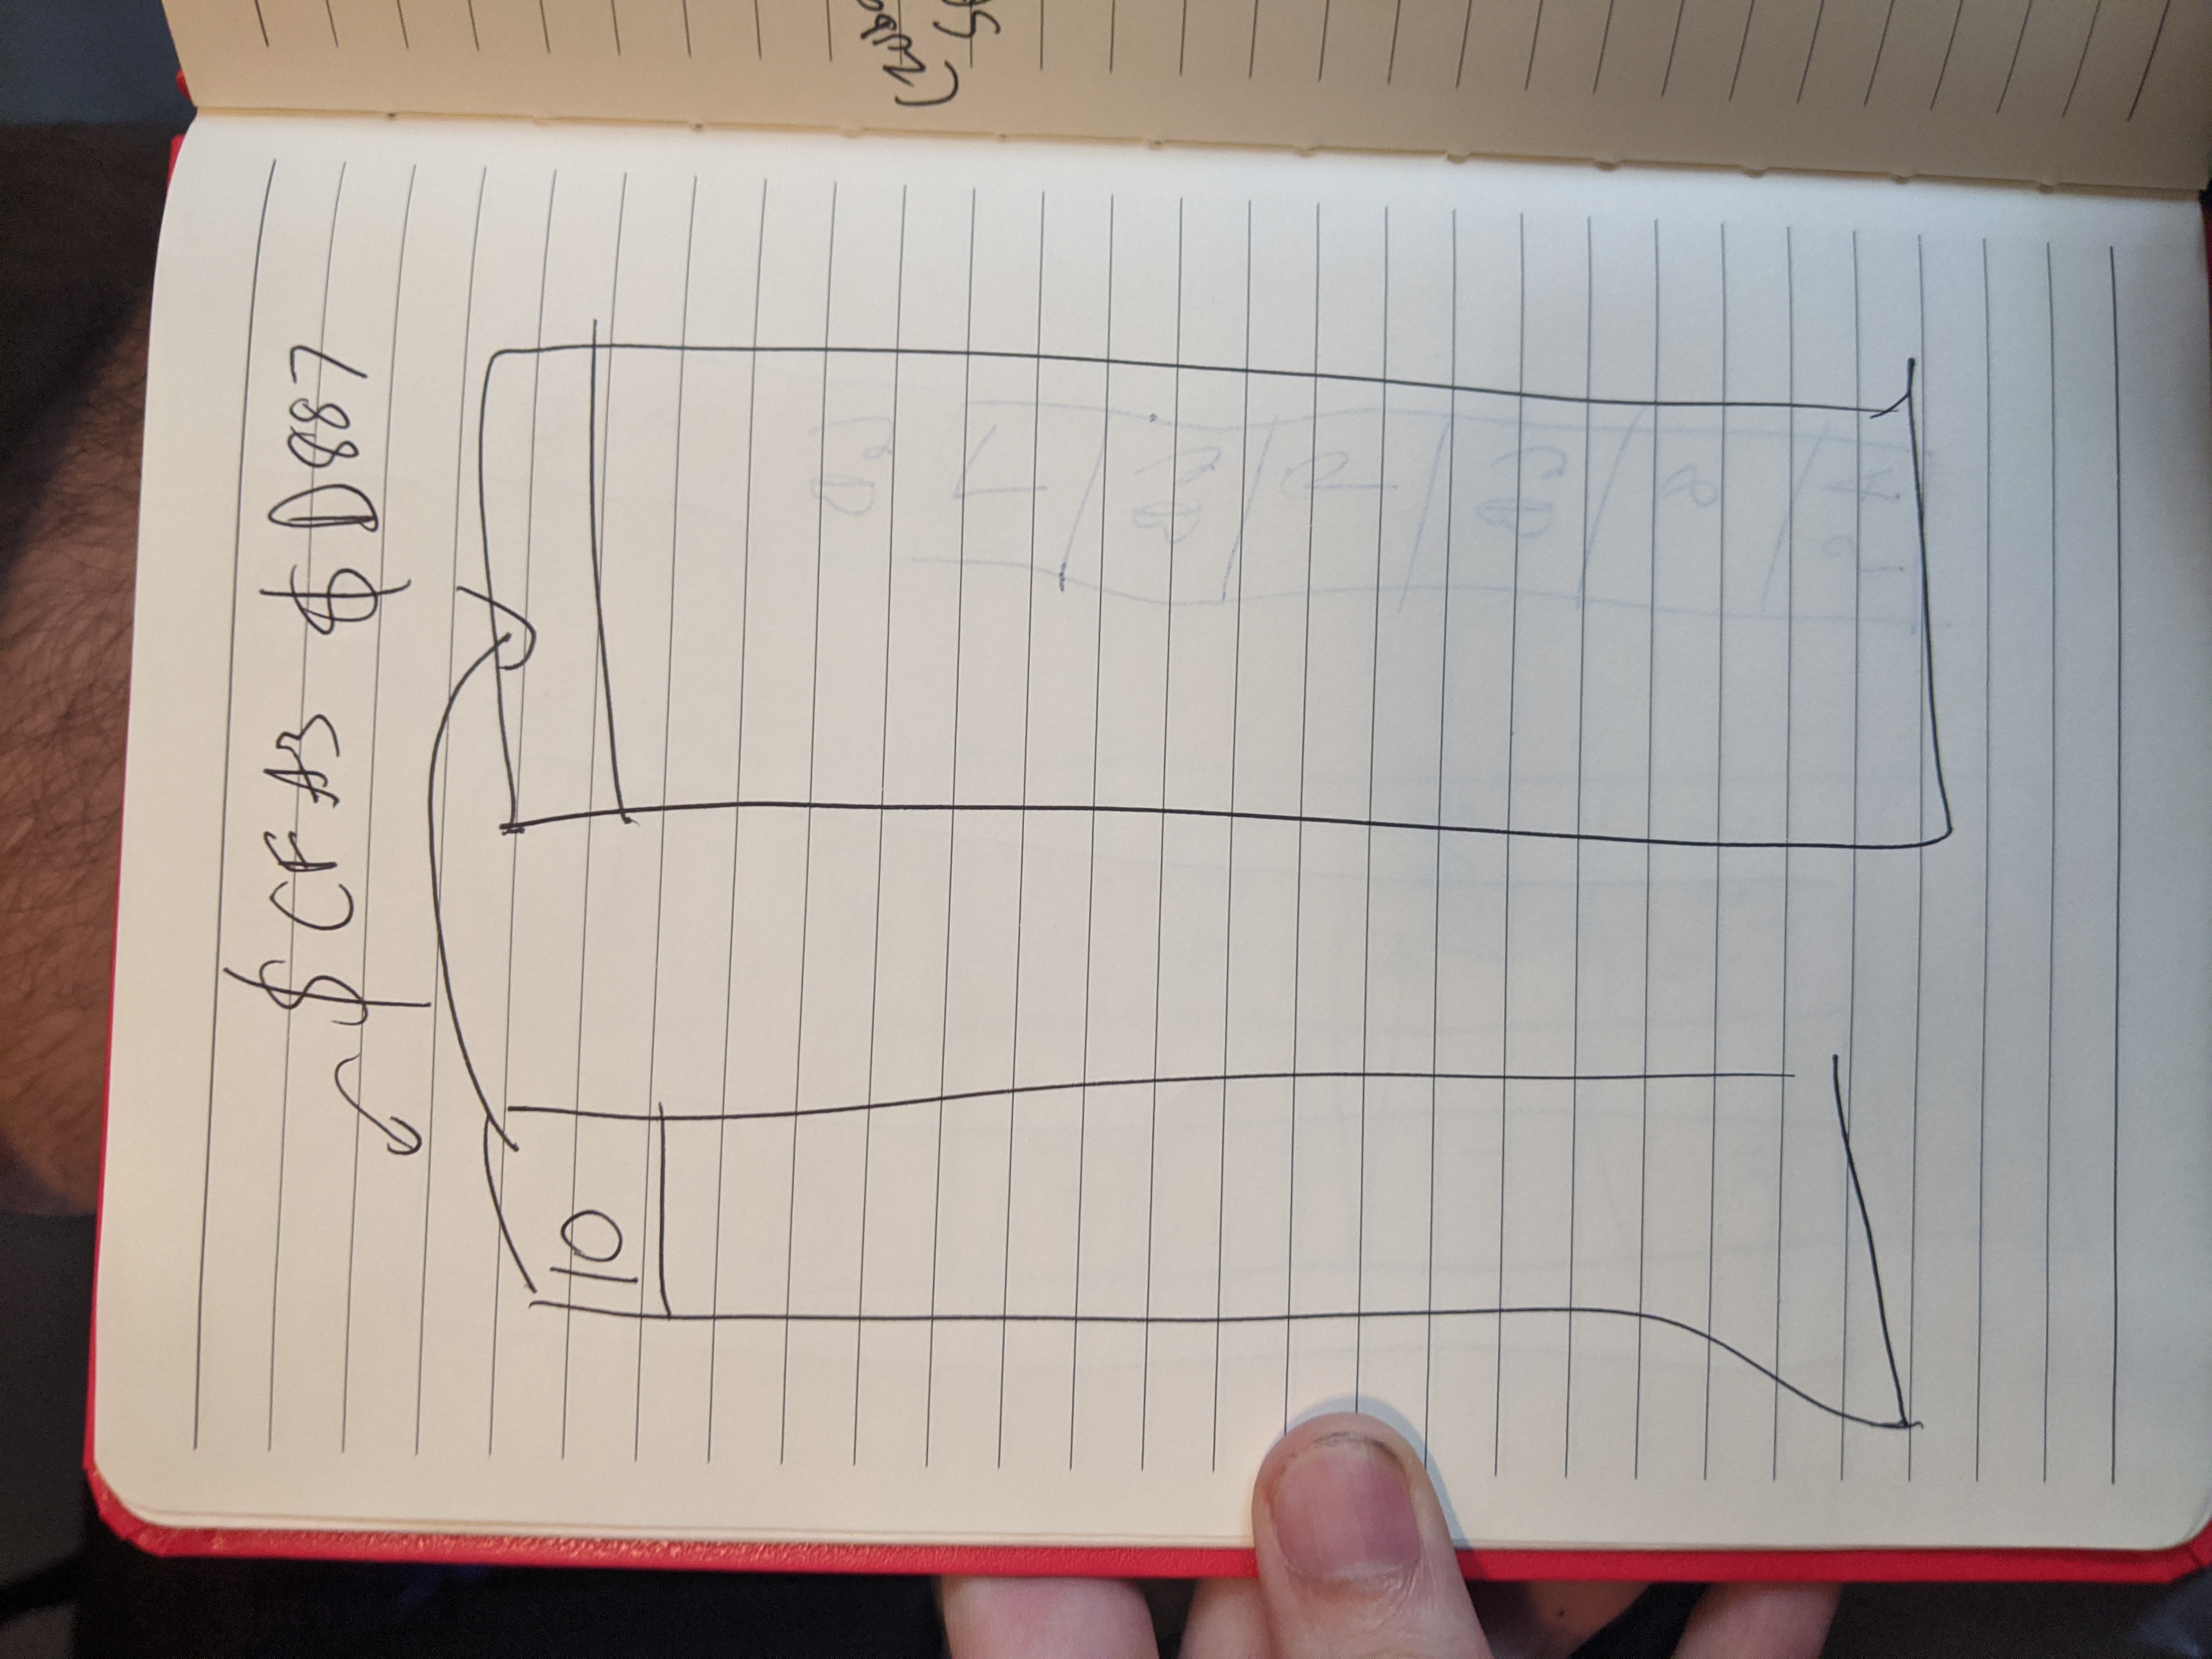 $CFA3 $D887
10